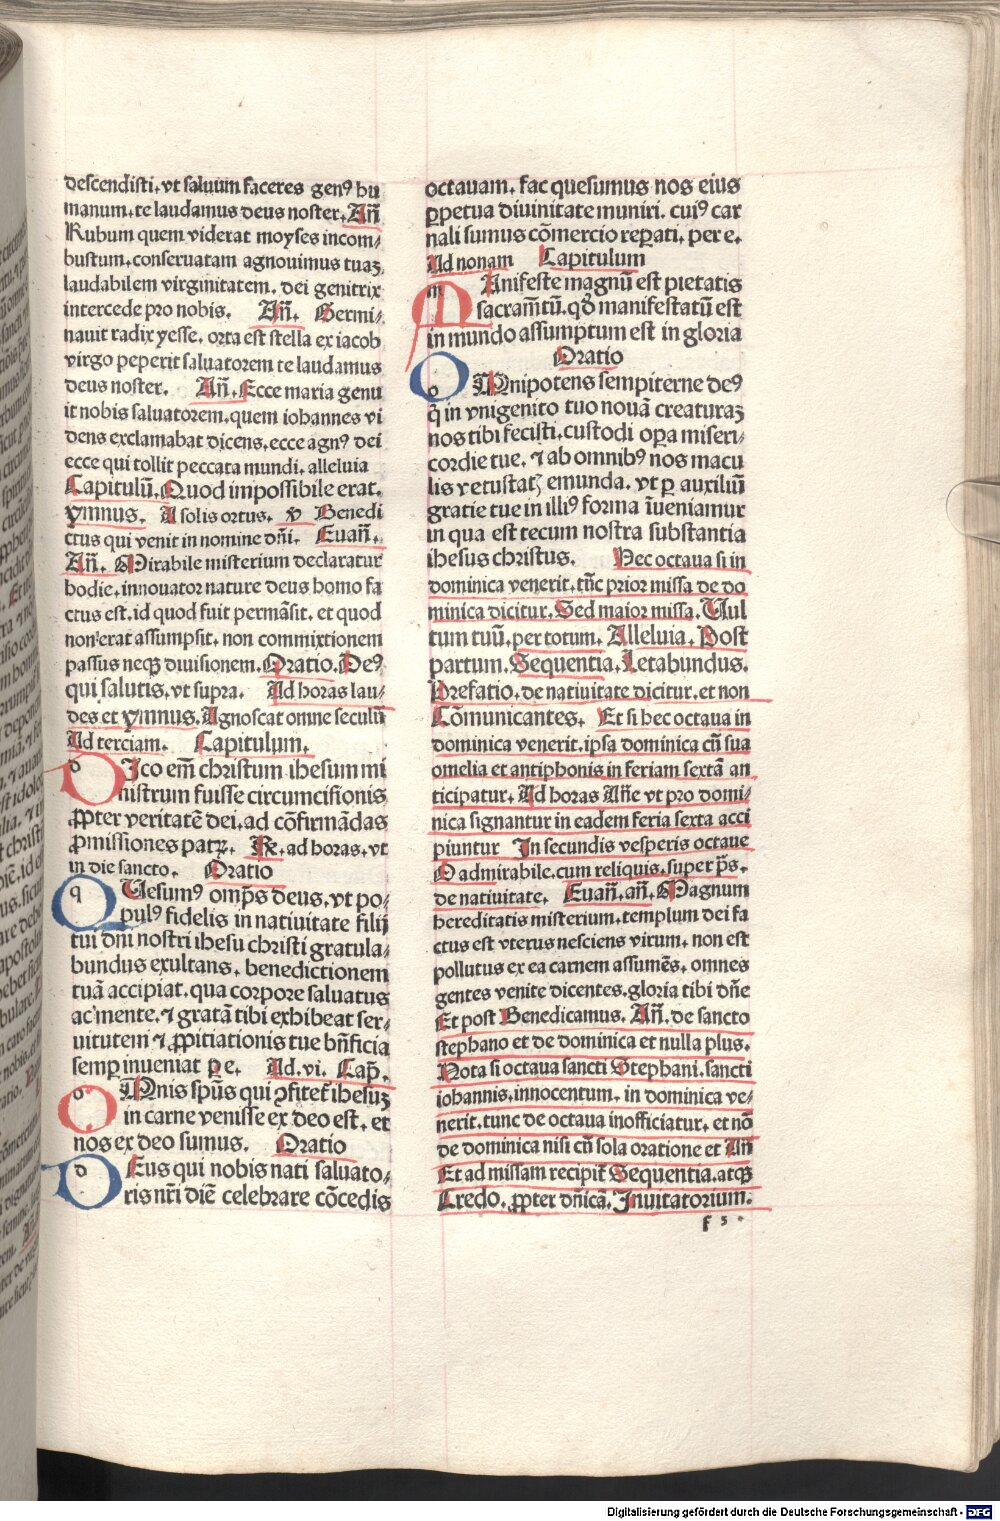 descendisti. vt saluum faceres genꝰ hu
manum. te laudamus deus noster. Añ
Rubum quem viderat moyses incom/
bustum. conseruatam agnouimus tuaʒ
laudabilem virginitatem. dei genitrix
intercede pro nobis. Añ. Germi/
nauit radix yesse. orta est stella ex iacob
virgo peperit saluatorem te laudamus
deus noster. Añ. Ecce maria genu
it nobis saluatorem. quem iohannes vi
dens exclamabat dicens. ecce agnꝰ dei
ecce qui tollit peccata mundi. alleluia
Capitulū. Quod impossibile erat.
ymnus. A solis ortus. v Benedi
ctus qui venit in nomine dñi. Euañ.
Añ. Mirabile misterium declaratur
hodie. innouator nature deus homo fa
ctus est. id quod fuit permāsit. et quod
non erat assumpsit. non commixtionem
passus necꝫ diuisionem. Oratio. Deꝰ
qui salutis. vt supra. Ad horas lau/
des et ymnus. Agnoscat omne seculū
Ad terciam. Capitulum.
d Ico em̄ christum ihesum mi
nistrum fuisse circumcisionis
ꝓpter veritatē dei. ad cōfirmādas
ꝓmissiones patꝝ. Re. ad horas. vt
in die sancto. Oratio
q Uesumꝰ omp̄s deus. vt po/
pulꝰ fidelis in natiuitate filij
tui dn̄i nostri ihesu christi gratula/
bundus exultans. benedictionem
tuā accipiat. qua corpore saluatus
ac mente. ⁊ gratā tibi exhibeat ser/
uitutem ⁊ ꝓpitiationis tue bn̄ficia
semꝑ inueniat p e. Ad. vi. Cap̄.
o Mnis spūs qui ꝯfitet̄ ihesuʒ
in carne venisse ex deo est. et
nos ex deo sumus. Oratio
d Eus qui nobis nati saluato/
ris nr̄i diē celebrare cōcedis
octauam. fac quesumus nos eius
ꝑpetua diuinitate muniri. cuiꝰ car
nali sumus cōmercio reꝑati. per e.
Ad nonam Capitulum
m Anifeste magnū est pietatis
sacram̄tū. qđ manifestatū est
in mundo assumptum est in gloria
Oratio
o Mnipotens sempiterne deꝰ
q̄ in vnigenito tuo nouā creaturaʒ
nos tibi fecisti. custodi oꝑa miseri/
cordie tue. ⁊ ab omnibꝰ nos macu
lis vetustatꝭ emunda. vt ꝑ auxiliū
gratie tue in illiꝰ forma īueniamur
in qua est tecum nostra substantia
ihesus christus. Hec octaua si in
dominica venerit. tūc prior missa de do
minica dicitur. Sed maior missa. Uul
tum tuū. per totum. Alleluia. Post
partum. Sequentia. Letabundus.
Prefatio. de natiuitate dicitur. et non
Cōmunicantes. Et si hec octaua in
dominica venerit. ipsa dominica cū sua
omelia et antiphonis in feriam sextā an
ticipatur. Ad horas Añe vt pro domi/
nica signantur in eadem feria sexta acci
piuntur In secundis vesperis octaue
O admirabile. cum reliquis. super p̄s.
de natiuitate. Euañ. añ. Magnum
hereditatis misterium. templum dei fa
ctus est vterus nesciens virum. non est
pollutus ex ea carnem assumēs. omnes
gentes venite dicentes. gloria tibi dn̄e
Et post Benedicamus. Añ. de sancto
stephano et de dominica et nulla plus.
Nota si octaua sancti Stephani. sancti
iohannis. innocentum. in dominica ve/
nerit. tunc de octaua inofficiatur. et nō
de dominica nisi cū sola oratione et Añ
Et ad missam recipit̄ Sequentia. atqꝫ
Credo. ꝓpter dn̄icā. Inuitatorium.
f 5
Digitalisierung gefördert durch die Deutsche Forschungsgemeinschaft - DFG